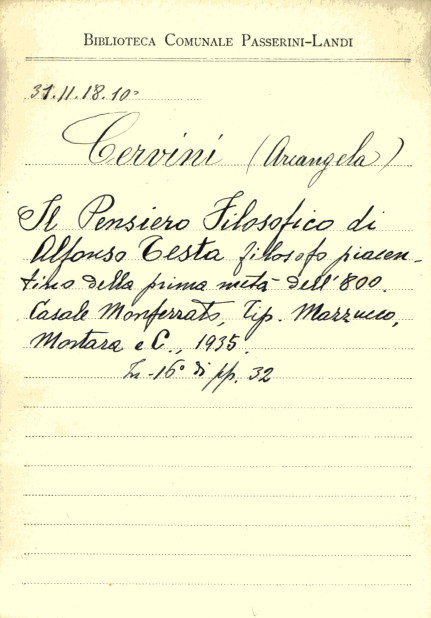 BIBLIOTECA COMUNALE PASSERINI-LANDI
31.II.18.10º
Cervini (Arcangela)
Il Pensiero Filosofico di
Alfonso Testa filosofo piacen-
tino della prima metà dell'800.
Casale Monferrato, Tip. Mazzucco,
Mortara e C., 1935.
In-16º di pp. 32